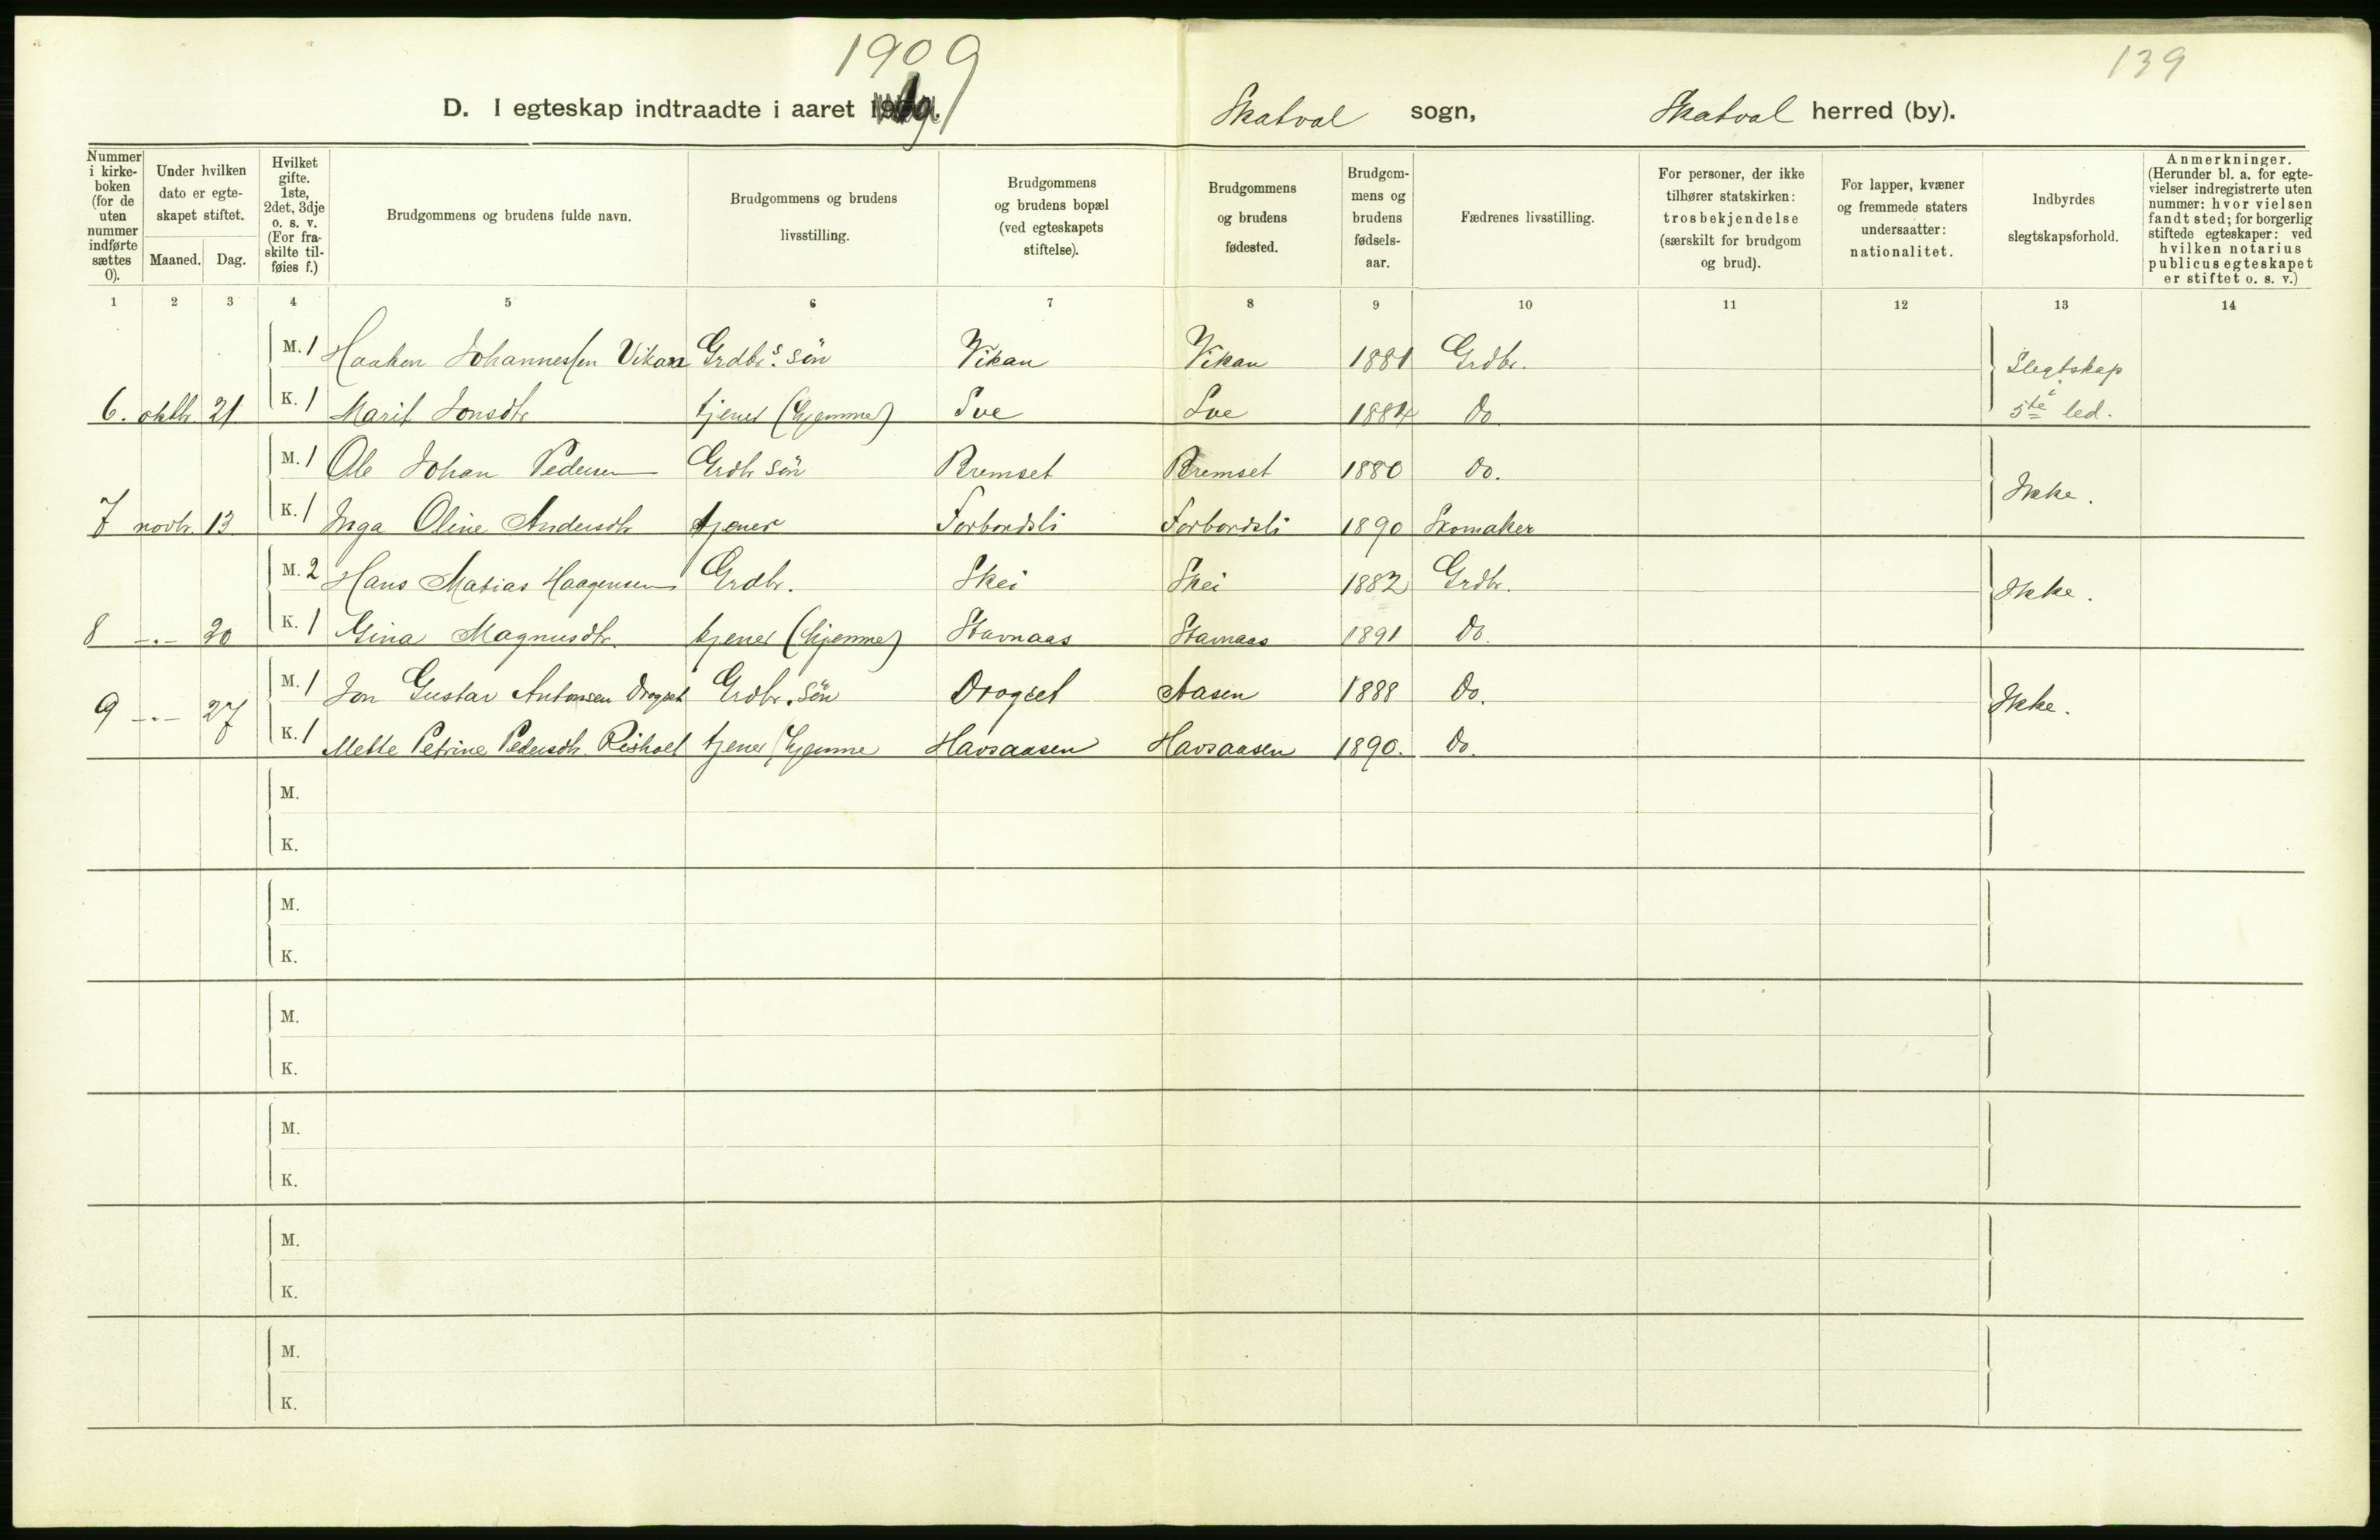 1909
139
D. I egteskap indtraadte i aaret 19 Skatval sogn, Skatval herred (by).
Nummer i kirkeboken (for de uten nummer indførte sættes 0).
Under hvilken dato er egteskapet stiftet.
Maaned. Dag.
Hvilket gifte. 1ste, 2det, 3dje o. s. v. (For fraskilte tilføies f.)
Brudgommens og brudens fulde navn.
Brudgommens og brudens livsstilling.
Brudgommens og brudens bopæl (ved egteskapets stiftelse).
Brudgommens og brudens fødested.
Brudgommens og brudens fødselsaar.
Fædrenes livsstilling.
For personer, der ikke tilhører statskirken: trosbekjendelse (særskilt for brudgom og brud).
For lapper, kvæner og fremmede staters undersaatter: nationalitet.
Indbyrdes slegtskapsforhold.
Anmerkninger. (Herunder bl. a. for egtevielser indregistrerte uten nummer: hvor vielsen fandt sted; for borgerlig stiftede egteskaper: ved hvilken notarius publicus egteskapet er stiftet o. s. v.)
1 2 3 4 5 6 7 8 9 10 11 12 13 14
M. 1 Haaken Johannessen Vikan Grdbr.s sön Vikan Vikan 1881 Grdbr. Slegtskap i
6. oktbr. 21 K. 1 Marit Jonsdtr tjener (hjemme) Sve Sve 1884 Do 5te led.
M. 1 Ole Johan Pedersen Grdbr sön Bremset Bremset 1880 Do.
7 novbr. 13 K. 1 Inga Oline Andersdtr tjener Forbordsli Forbordsli 1890 Skomaker Ikke.
M. 2 Hans Matias Haagensen Grdbr. Skei Skei 1882 Grdbr. Ikke.
8 -.- 20 K. 1 Gina Magnusdtr. tjener (hjemme) Stavnaas Stavnaas 1891 Do.
M. 1 Jon Gustav Antonsen Drogset Grdbr. sön Drogset Aasen 1888 Do.
9 -.- 27 K. 1 Mette Petrine Pedersdtr. tjener (hjemme Havsaasen Havsaasen 1890. Do. Ikke.
M.
K.
M.
K.
M.
K.
M.
K.
M.
K.
M.
K.